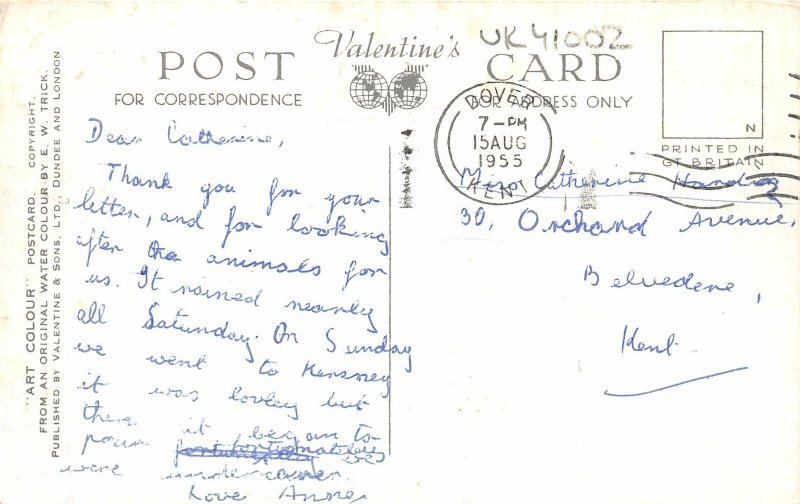 UK41002
Valentine's
POST CARD
FOR CORRESPONDENCE
FOR ADDRESS ONLY
N
PRINTED IN
GT BRITAIN
DOVER
7-PM
15 AUG
1955
KENT
"ART COLOUR" POSTCARD. COPYRIGHT.
FROM AN ORIGINAL WATER COLOUR BY E. W. TRICK.
PUBLISHED BY VALENTINE & SONS, LTD., DUNDEE AND LONDON
Dear Catherine,
Thank you for your
letter, and for looking
after the animals for
us. It rained nearly
all Saturday. On Sunday
we went to Kersney
it was lovley but
then it began to
pour we
were undercover.
Love Anne
Miss Catherine Harding
30, Orchard Avenue,
Belvedere,
Kent.